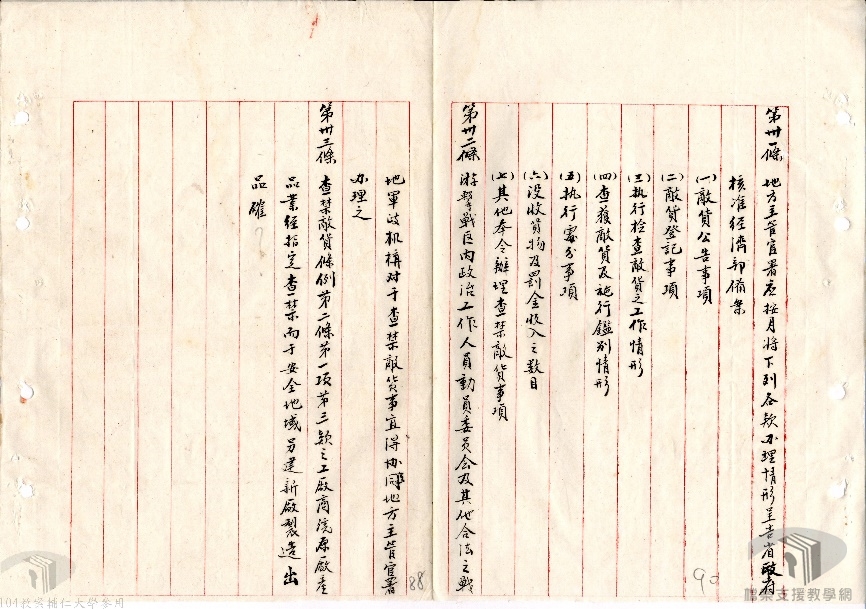 第卅一條　地方主管官署應按月將下列各款办理情形呈告省政府
核准經濟部備案
(一)敵貨公告事項
(二)敵貨登記事項
(三)执行检查敵貨之工作情形
(四)查獲敵貨及施行鑑别情形
(五)执行處分事項
(六)没收貨物及罰金收入之数目
(七)其他奉令辦理查禁敵貨事項
第卅二條　游擊戰区内政治工作人員動員委員会及其他合法之戰
地軍政机構对于查禁敵貨事宜得协同地方主管官署
办理之
第卅三條　查禁敵貨條例第二條第一項第三款之工廠商號原廠產
品業經指定查禁而于安全地域另建新廠製造出
品確?
88
90
104教案輔仁大學參用
檔案支援教學網